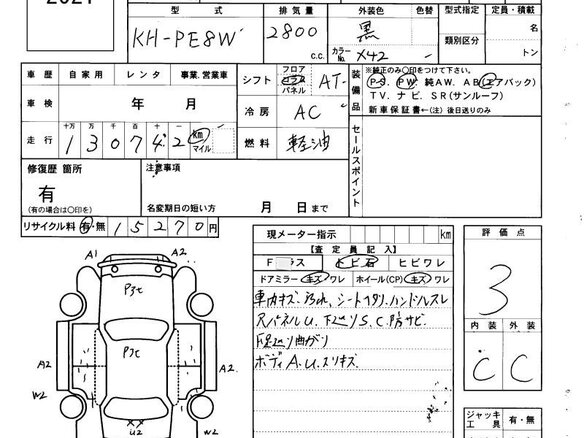 型式 排気量 外装色 色替 型式指定 定員・積載
KH-PE8W 2800 c.c. 黒 カラーNo. X42 類別区分 名
トン
車歴 自家用 レンタ 事業、営業車 シフト フロア コラム パネル AT 装備品 ※純正のみ〇印をつけて下さい。
P・S. P W. 純AW. AB(エアバック)
TV. ナビ. SR(サンルーフ)
新車保証書←(注)後日送りのみ
車検 年 月 冷房 AC
走行 十万 万 千 百 十 一 1 3 0 7 4 2 km マイル 燃料 軽油 セールスポイント
修復歴 箇所 注意事項
有
(有の場合は〇印を) 名変期日の短い方 月 日まで
リサイクル料 有・無 1 5 2 7 0 円
現メーター指示 km 評価点
【査定員記入】
トビ石 ヒビワレ
ドアミラー キズ ワレ ホイール(CP) キズ ワレ
3
車内キズ
Rパネルu. 下廻りS.C.防サビ
下廻り曲がり
ボディA.u.スリキズ
内装 外装
C C
ジャッキ 有・無
工具 有・無
A1 A2
P3c
P3c
A2 A2
W2 W2
XX
U2